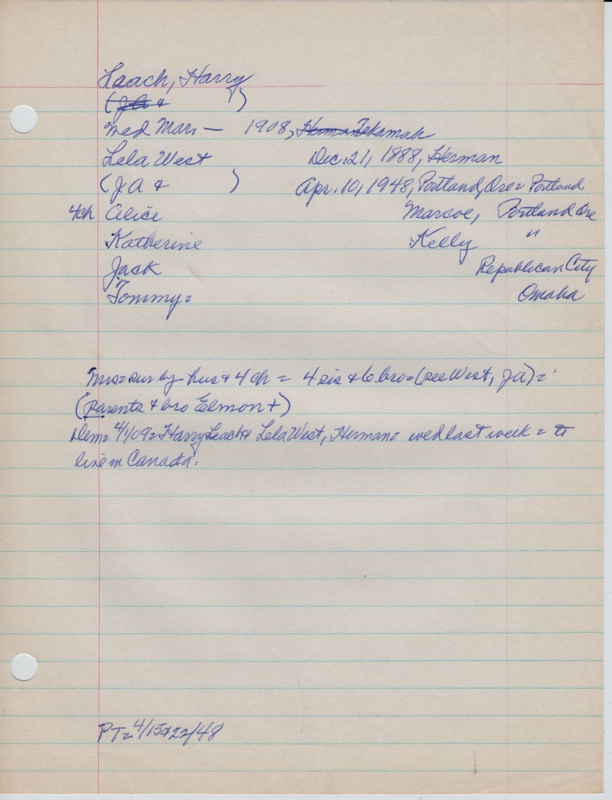 Laach, Harry
(JA & )
Wed Mar — 1908, Herman Tekamah
Lela West Dec. 21, 1888, Herman
(JA & ) Apr. 10, 1948, Portland, Ore = Portland
4ch Alice Marsoe, Portland Ore
Katherine Kelly "
Jack Republican City
Tommy = Omaha
Mrs = sur by hus & 4 ch = 4 sis & 6 bro = (see West, JA) =
(Parents & bro Elmon +)
Dem = 4/1/09 = Harry Leach & Lela West, Herman = wed last week = to
live in Canada.
PT = 4/15&22/48